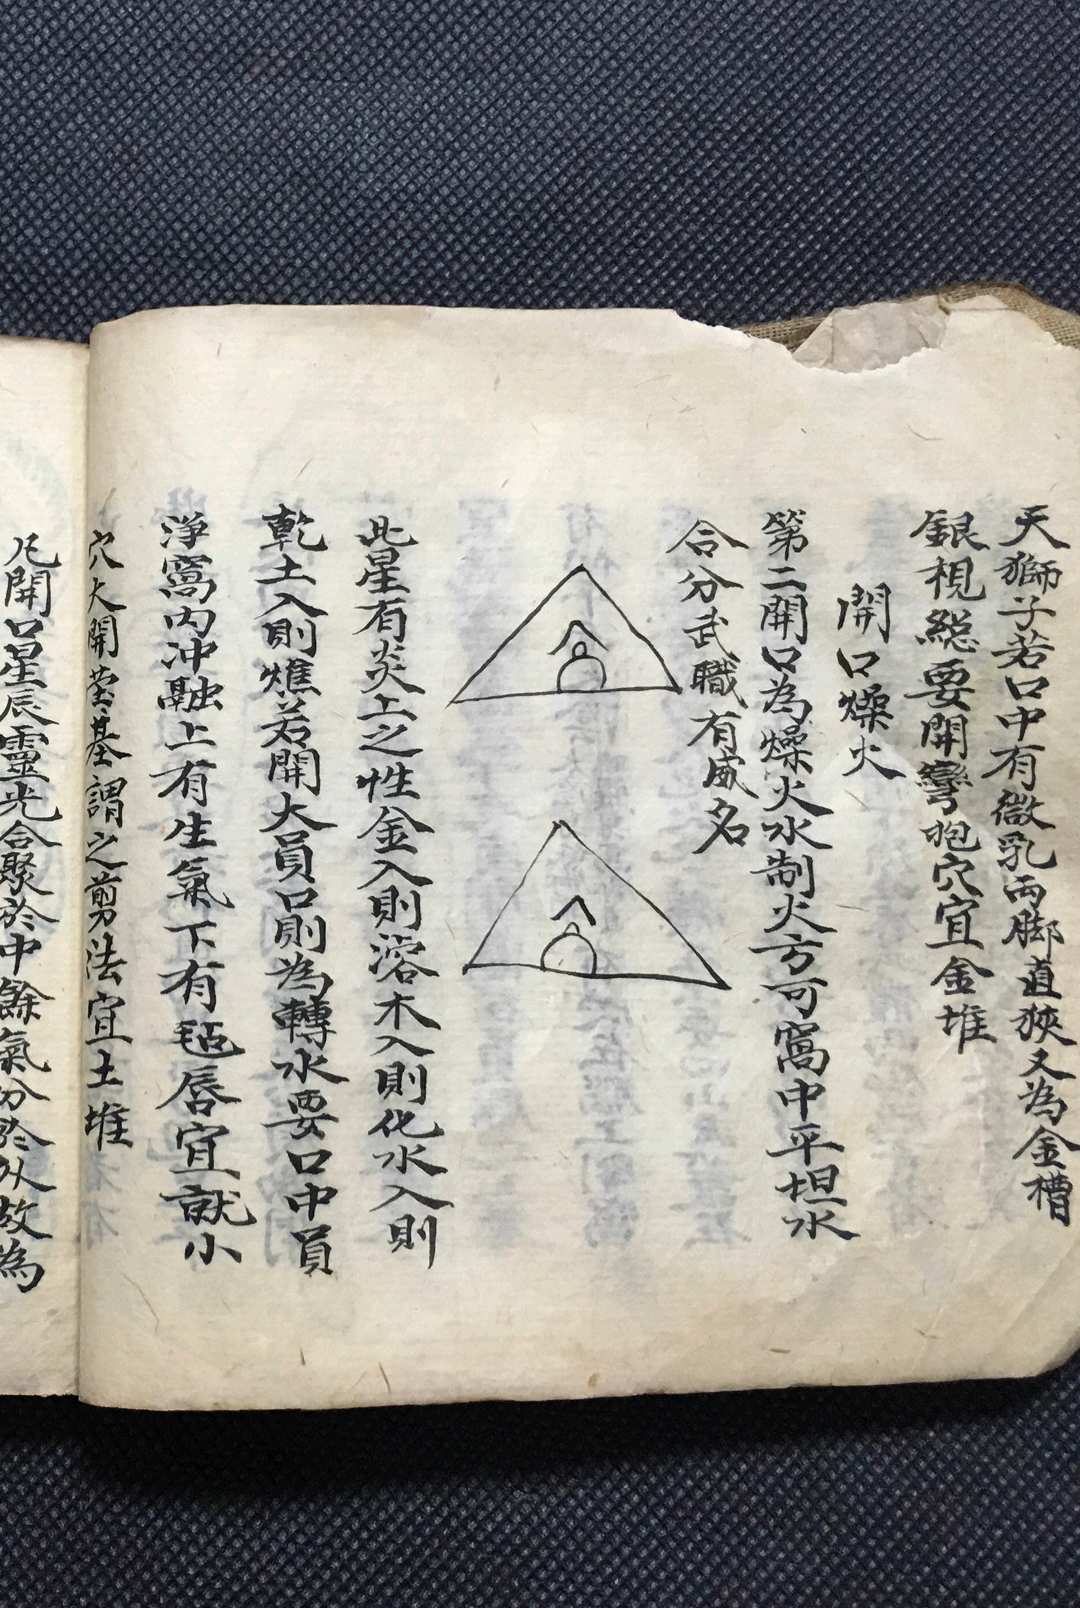 天獅子若口中有微乳両脚直狹又為金槽
銀視総要開彎抱穴宜金堆
開口燥火
第二開口為燥火水制火方可窩中平坦水
合分武職有威名
此星有炎上之性金入則溶木入則化水入則
乾土入則燋若開大員口則為轉水要口中員
淨窩内冲融上有生氣下有毡唇宜就小
穴大開塋基謂之剪法宜土堆
凡開口星辰靈光合聚於中餘氣分於从故為